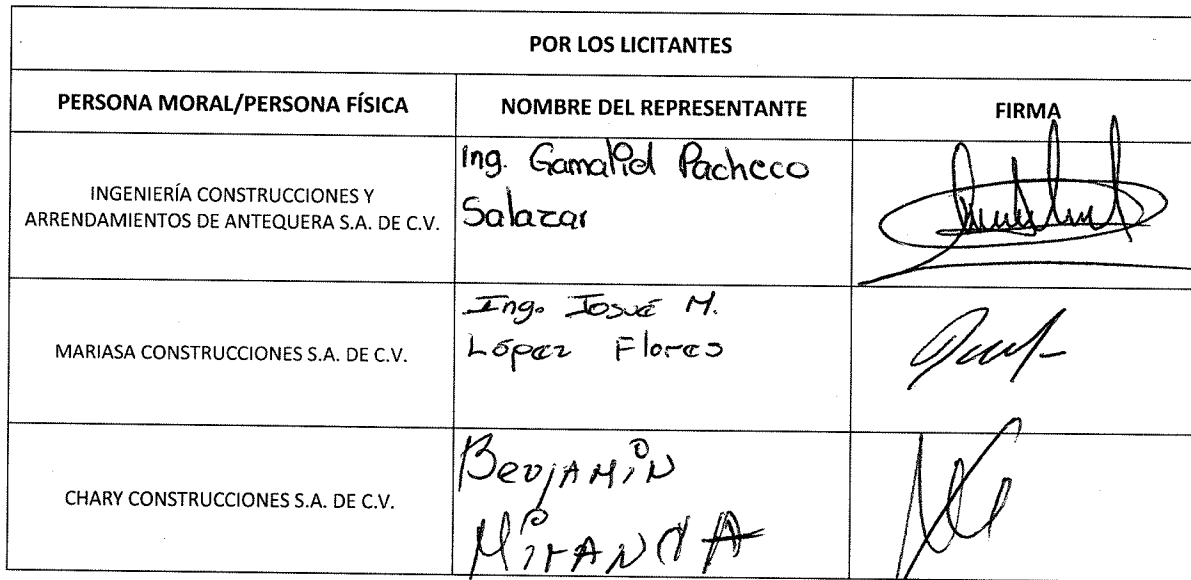 POR LOS LICITANTES
PERSONA MORAL/PERSONA FÍSICA NOMBRE DEL REPRESENTANTE FIRMA
INGENIERÍA CONSTRUCCIONES Y
ARRENDAMIENTOS DE ANTEQUERA S.A. DE C.V.
Ing. Gamaliel Pacheco
Salazar
MARIASA CONSTRUCCIONES S.A. DE C.V.
Ing. Josué M.
López Flores
CHARY CONSTRUCCIONES S.A. DE C.V.
BenjAMiN
MirANdA